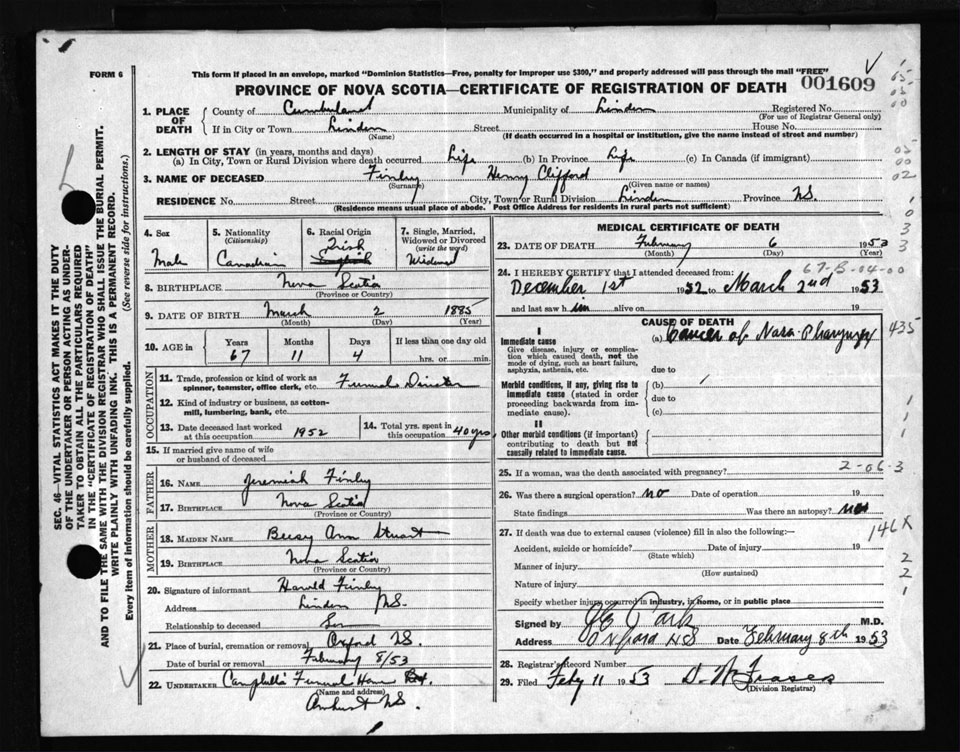 FORM 6
This form if placed in an envelope, marked "Dominion Statistics—Free, penalty for improper use $300," and properly addressed will pass through the mail "FREE"
PROVINCE OF NOVA SCOTIA—CERTIFICATE OF REGISTRATION OF DEATH 001609
1. PLACE OF DEATH
County of Cumberland Municipality of Linden Registered No.
(For use of Registrar General only)
If in City or Town Linden Street House No.
(Name) (If death occurred in a hospital or institution, give the name instead of street and number)
2. LENGTH OF STAY (in years, months and days)
(a) In City, Town or Rural Division where death occurred Life (b) In Province Life (c) In Canada (if immigrant)
3. NAME OF DECEASED Finley Henry Clifford
(Surname) (Given name or names)
RESIDENCE No. Street City, Town or Rural Division Linden Province N.S.
(Residence means usual place of abode. Post Office Address for residents in rural parts not sufficient)
4. Sex
Male
5. Nationality
(Citizenship)
Canadian
6. Racial Origin
Irish
English
7. Single, Married, Widowed or Divorced
(write the word)
Widowed
8. BIRTHPLACE Nova Scotia
(Province or Country)
9. DATE OF BIRTH March 2 1885
(Month) (Day) (Year)
10. AGE in Years Months Days If less than one day old
67 11 4 hrs. or min.
OCCUPATION
11. Trade, profession or kind of work as
spinner, teamster, office clerk, etc. Funeral Director
12. Kind of industry or business, as cotton-
mill, lumbering, bank, etc.
13. Date deceased last worked
at this occupation 1952
14. Total yrs. spent in
this occupation 40 yrs.
15. If married give name of wife
or husband of deceased
FATHER
16. NAME Jeremiah Finley
17. BIRTHPLACE Nova Scotia
(Province or Country)
MOTHER
18. MAIDEN NAME Ann Stuart
19. BIRTHPLACE Nova Scotia
(Province or Country)
20. Signature of informant Harold Finley
Address Linden N.S.
Relationship to deceased Son
21. Place of burial, cremation or removal Oxford N.S.
Date of burial or removal February 8/53
22. UNDERTAKER Campbells Funeral Home
(Name and address)
Amherst N.S.
MEDICAL CERTIFICATE OF DEATH
23. DATE OF DEATH February 6 1953
(Month) (Day)
67-B-04-00
24. I HEREBY CERTIFY that I attended deceased from:
December 1st 1952 to March 2nd 1953
and last saw h im alive on 19
CAUSE OF DEATH
I
Immediate cause
Give disease, injury or complication which caused death, not the mode of dying, such as heart failure, asphyxia, asthenia, etc.
(a) Cancer of Naso Pharynx 435
due to
Morbid conditions, if any, giving rise to immediate cause (stated in order proceeding backwards from immediate cause).
(b)
due to
(c)
II
Other morbid conditions (if important) contributing to death but not causally related to immediate cause.
2-06-3
25. If a woman, was the death associated with pregnancy?
26. Was there a surgical operation? no Date of operation 19
State findings Was there an autopsy? no
146X
27. If death was due to external causes (violence) fill in also the following:—
Accident, suicide or homicide? Date of injury 19
(State which)
Manner of injury
(How sustained)
Nature of injury
Specify whether injury occurred in industry, in home, or in public place
Signed by M.D.
Address Oxford N.S. Date February 8th 1953
28. Registrar's Record Number
29. Filed Feby 11 1953 D. W. Fraser
(Division Registrar)
SEC. 46—VITAL STATISTICS ACT MAKES IT THE DUTY
OF THE UNDERTAKER OR PERSON ACTING AS UNDER-
TAKER TO OBTAIN ALL THE PARTICULARS REQUIRED
IN THE "CERTIFICATE OF REGISTRATION OF DEATH"
AND TO FILE THE SAME WITH THE DIVISION REGISTRAR WHO SHALL ISSUE THE BURIAL PERMIT.
WRITE PLAINLY WITH UNFADING INK. THIS IS A PERMANENT RECORD.
Every item of information should be carefully supplied. (See reverse side for instructions.)